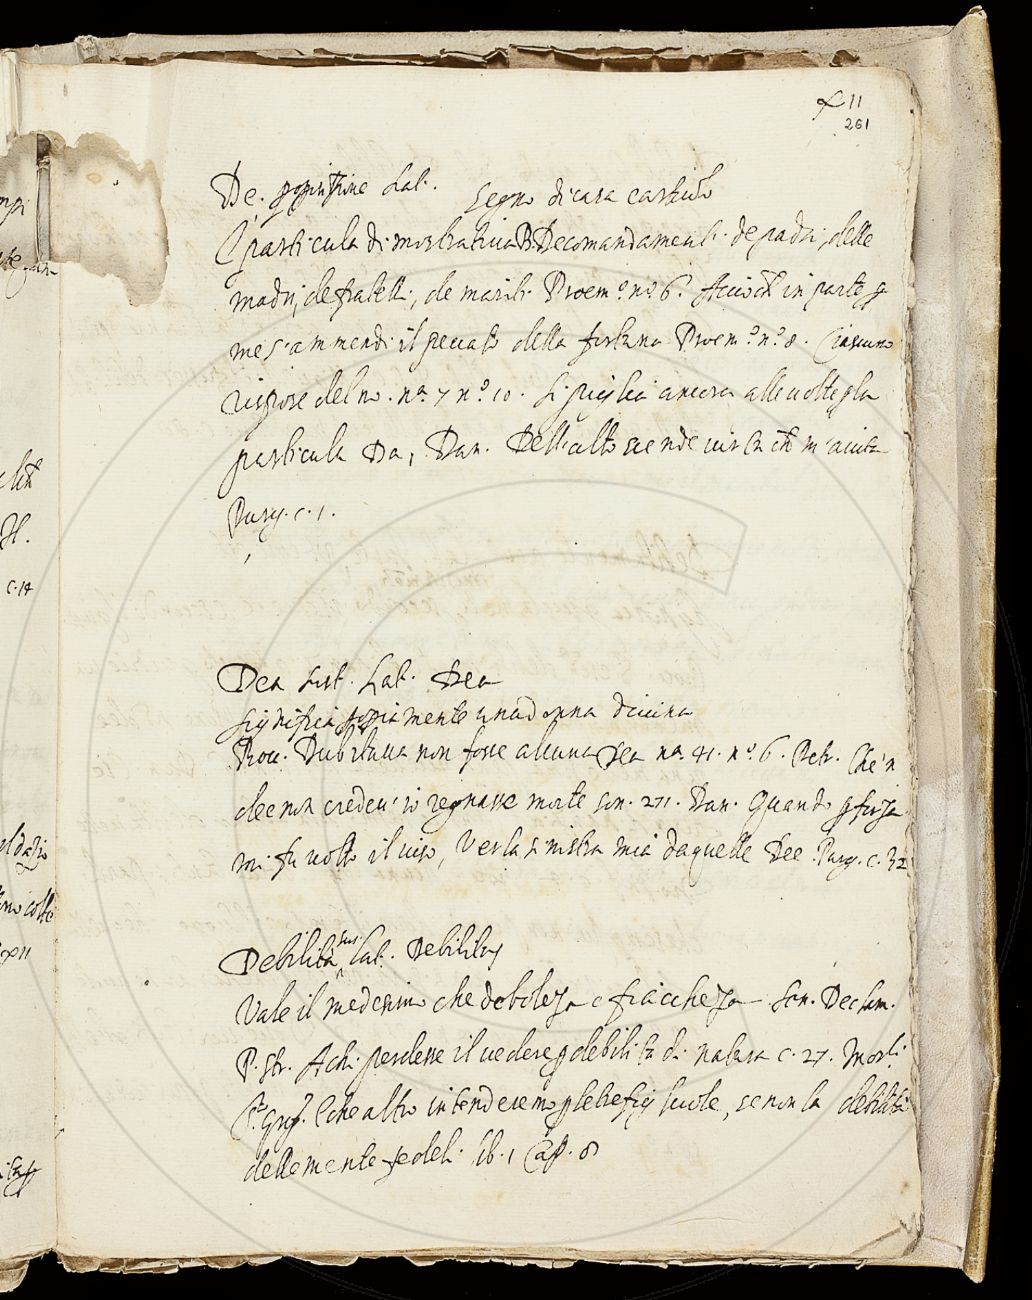 11
261
De. Lat. segno di caso
È particula dimostrativa B. De comandamenti de padri, delle
madri, de fratelli, de mariti Proem.º n.º 6. Acciò ch in parte p
me s'ammendi il peccato della fortuna Proem.º n.º 8. Ciascuno
rispose del no. n.ª 7 n.º 10. Si piglia ancora alle volte p la
particula Da, Dan. Dell'alto scende virtù ch m'aiuta
Purg. c. 1.
Dea sust. Lat. Dea
significa propiamente una donna divina
Bocc. Dubitava non fosse alcuna Dea na. 41. n.º 6. Petr. Che'n
dee non credev'io regnasse morte son. 271. Dan. Quando p forza
mi fu volto il viso, Ver la sinistra mia da quelle Dee. Purg. c. 32
Debilità sus. Lat. Debilitas
Vale il medesimo che deboleza e fiaccheza Sen. Declam.
P. Str. Achi perdesse il vedere p debilità di natura c. 27. Moral.
S. Greg. E che altro intenderemo p le be
se non la debilità
delle mente fedeli. lib. 1 Cap. 8
c. 14